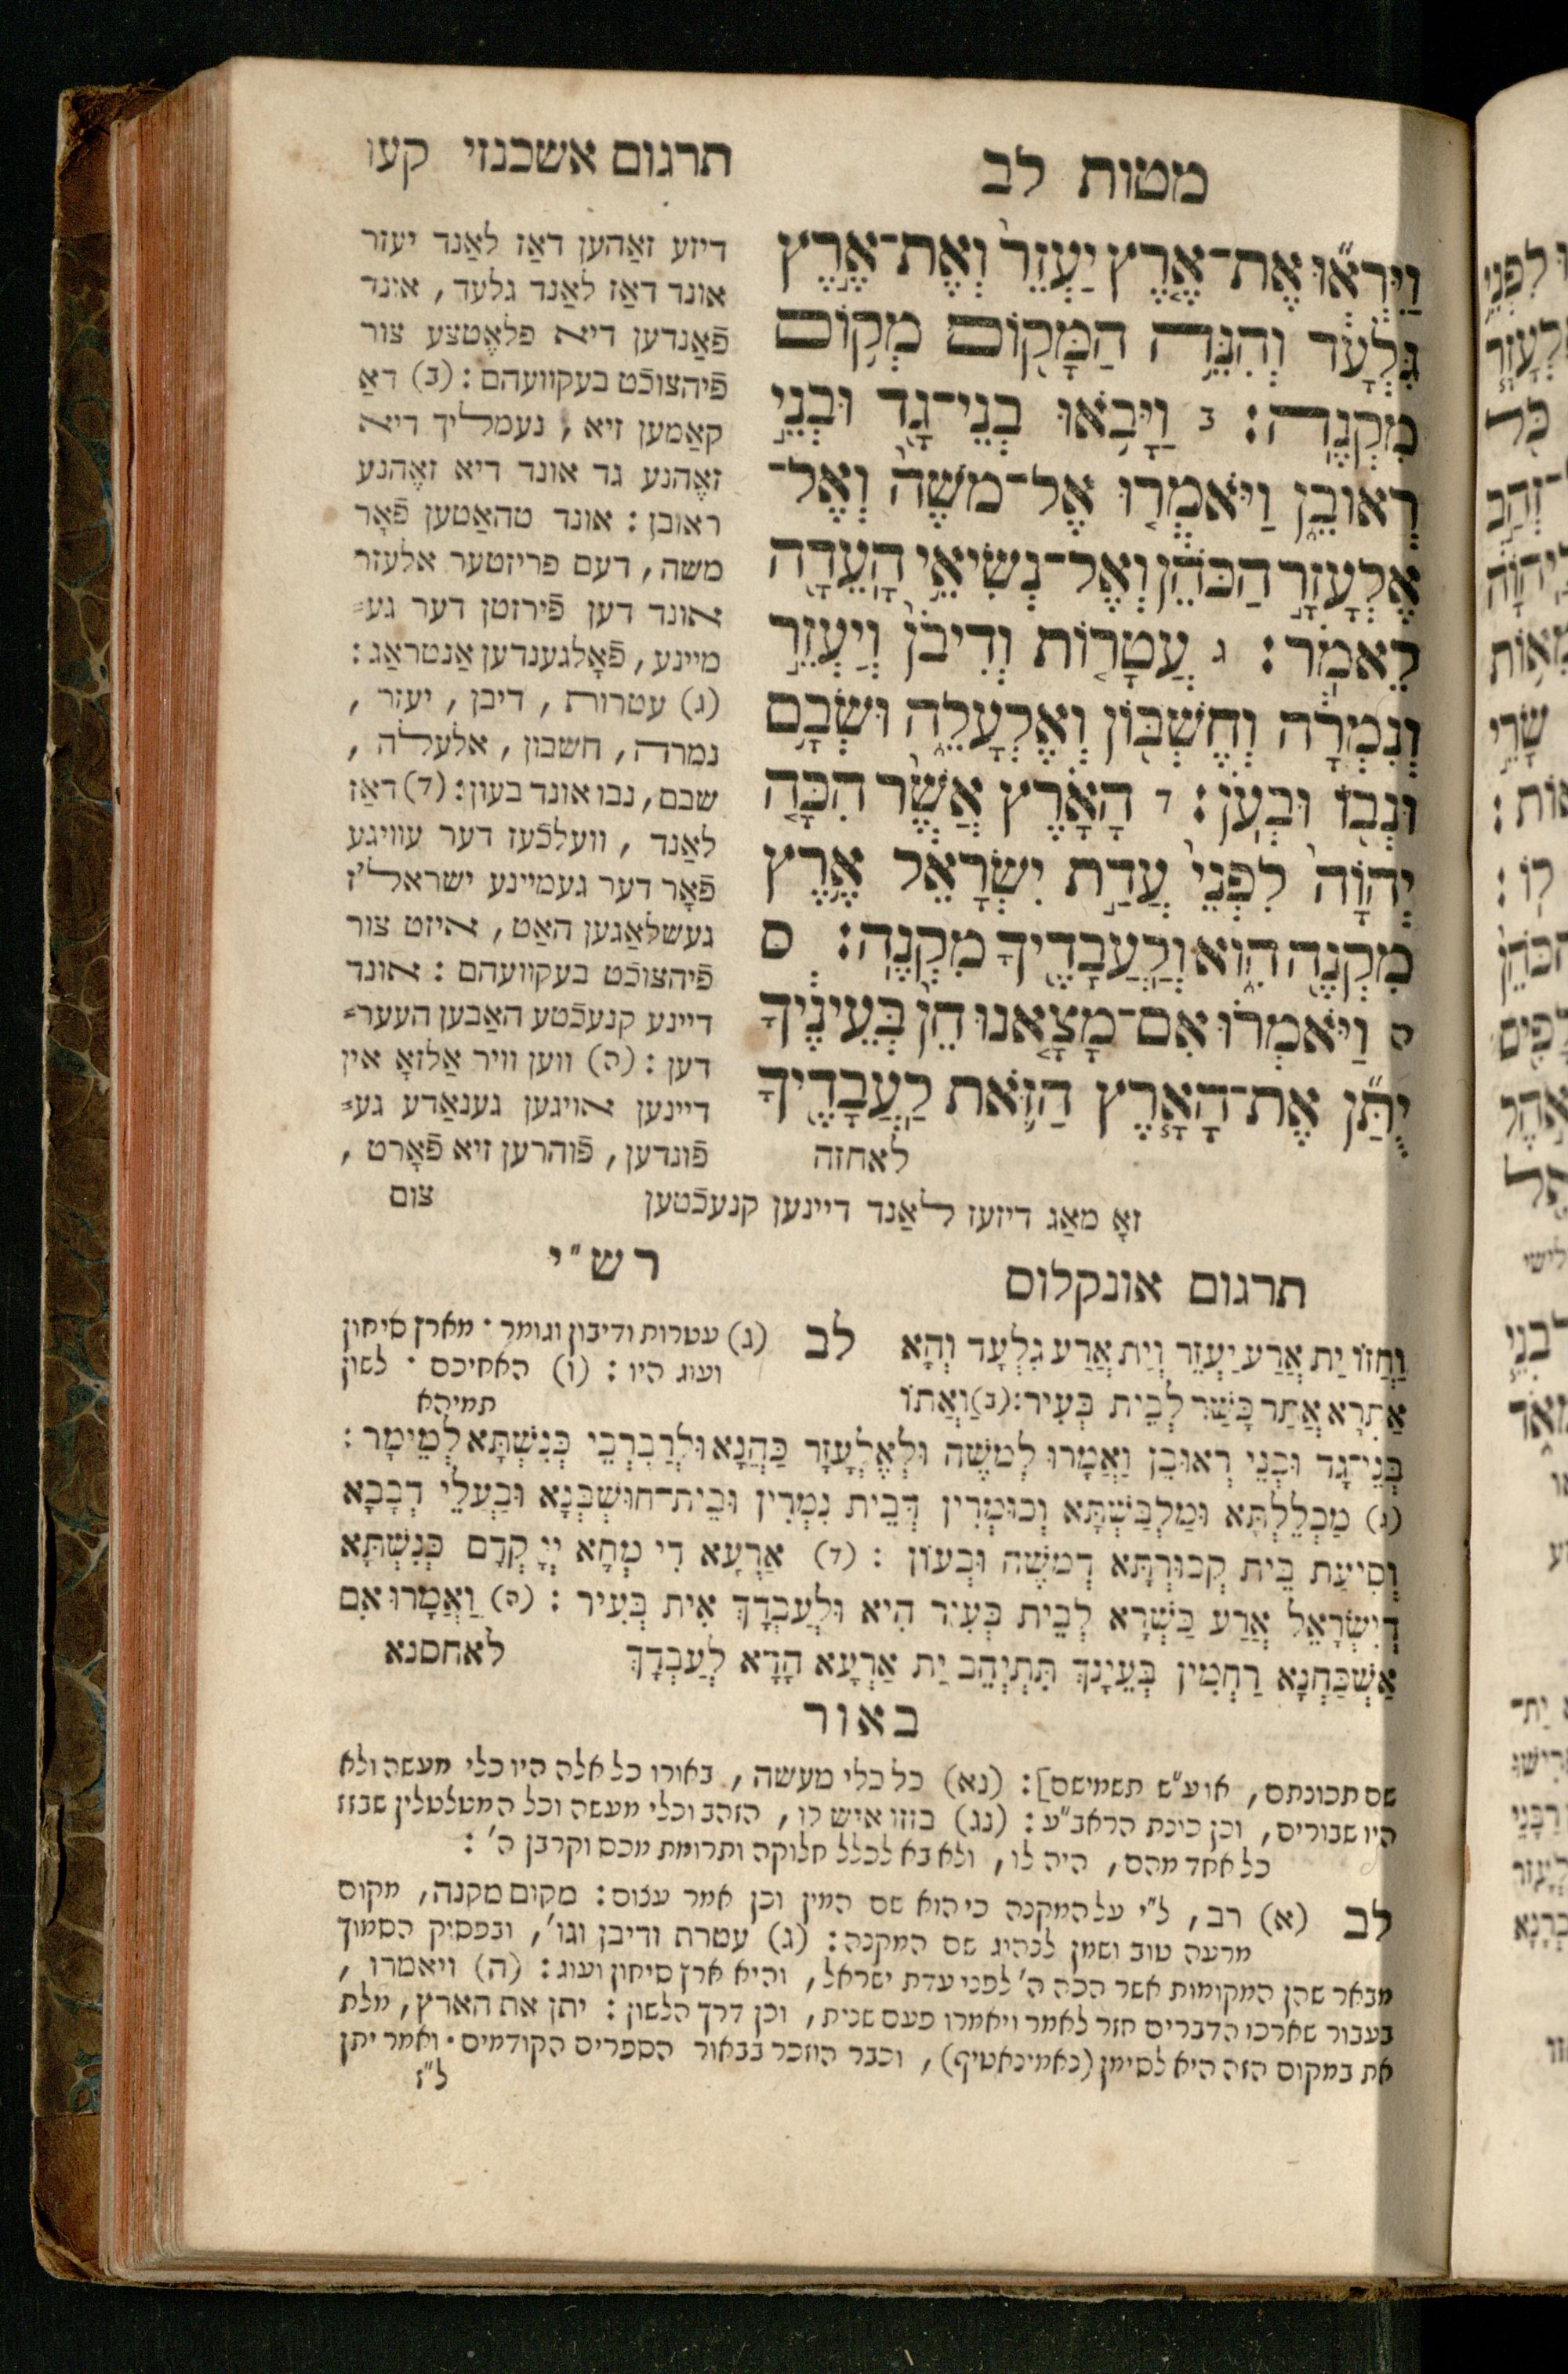 מטות לב
תרגום אשכנזי קעו
וַיִּרְא֞וּ אֶת־אֶ֤רֶץ יַעְזֵר֙ וְאֶת־אֶ֣רֶץ
גִּלְעָ֔ד וְהִנֵּ֥ה הַמָּק֖וֹם מְק֥וֹם
מִקְנֶֽה׃ ב וַיָּבֹ֥אוּ בְנֵי־גָ֖ד וּבְנֵ֣י
רְאוּבֵ֑ן וַיֹּאמְר֤וּ אֶל־מֹשֶׁה֙ וְאֶל־
אֶלְעָזָ֣ר הַכֹּהֵ֔ן וְאֶל־נְשִׂיאֵ֥י הָעֵדָ֖ה
לֵאמֹֽר׃ ג עֲטָר֤וֹת וְדִיבֹן֙ וְיַעְזֵ֣ר
וְנִמְרָ֔ה וְחֶשְׁבּ֖וֹן וְאֶלְעָלֵ֑ה וּשְׂבָ֥ם
וּנְב֖וֹ וּבְעֹֽן׃ ד הָאָ֗רֶץ אֲשֶׁ֨ר הִכָּ֤ה
יְהוָֹה֙ לִפְנֵי֙ עֲדַ֣ת יִשְׂרָאֵ֔ל אֶ֥רֶץ
מִקְנֶ֖ה הִ֑וא וְלַעֲבָדֶ֖יךָ מִקְנֶֽה׃ ס
ה וַיֹּאמְר֗וּ אִם־מָצָ֤אנוּ חֵן֙ בְּעֵינֶ֔יךָ
יֻתַּ֞ן אֶת־הָאָ֧רֶץ הַזֹּ֛את לַעֲבָדֶ֖יךָ
לאחזה
דיזע זאַהען דאַז לאַנד יעזר
אונד דאַז לאַנד גלעד, אונד
פֿאַנדען דיא פלאֶטצע צור
פֿיהצוכֿט בעקוועהם: (ב) דאַ
קאַמען זיא, נעמליך דיא
זאֶהנע גד אונד דיא זאֶהנע
ראובן: אונד טהאַטען פֿאָר
משה, דעם פריזטער אלעזר
אונד דען פֿירזטן דער גע־
מיינע, פֿאָלגענדען אַנטראַג:
(ג) עטרות, דיבן, יעזר,
נמרה, חשבון, אלעלה,
שבם, נבו אונד בעון: (ד) דאַז
לאַנד, וועלכֿעז דער עוויגע
פֿאָר דער געמיינע ישראל'ז
געשלאַגען האַט, איזט צור
פֿיהצוכֿט בעקוועהם: אונד
דיינע קנעכֿטע האַבען העער־
דען: (ה) ווען וויר אַלזאָ אין
דיינען אויגען גענאַדע גע־
פֿונדען, פֿוהרען זיא פֿאָרט,
זאָ מאַג דיזעז לאַנד דיינען קנעכֿטען
צום
תרגום אונקלוס
וַחֲזוֹ יַת אֲרַע יַעְזֵר וְיַת אֲרַע גִלְעָד וְהָא
אַתְרָא אֲתַר כָּשַׁר לְבֵית בְּעִיר: (ב) וַאֲתוֹ
בְּנֵי־גָד וּבְנֵי רְאוּבֵן וַאֲמָרוּ לְמֹשֶׁה וּלְאֶלְעָזָר כַּהֲנָא וּלְרַבְרְבֵי כְּנִשְׁתָּא לְמֵימָר:
(ג) מַכְלֵלְתָּא וּמַלְבַּשְׁתָּא וְכוּמְרִין דְּבֵית נִמְרִין וּבֵית־חוּשְׁבְּנָא וּבַעְלֵי דְבָבָא
וְסִיעַת בֵּית קְבוּרְתָּא דְמֹשֶׁה וּבְעוֹן: (ד) אַרְעָא דִי מְחָא יְיָ קֳדָם כְּנִשְׁתָּא
דְיִשְׂרָאֵל אֲרַע כַּשְׁרָא לְבֵית בְּעִיר הִיא וּלְעַבְדָּךְ אִית בְּעִיר: (ה) וַאֲמָרוּ אִם
אַשְׁכַּחְנָא רַחְמִין בְּעֵינָךְ תִּתְיְהֵב יַת אַרְעָא הָדָא לְעַבְדָּךְ
לאחסנא
רש"י
לב (ג) עטרות ודיבון וגומר · מארץ סיחון
ועוג היו: (ו) האחיכם · לשון
תמיהא
באור
שם תכונתם, או ע"ש תשמישם]: (נא) כל כלי מעשה, באורו כל אלה היו כלי מעשה ולא
היו שבורים, וכן כונת הראב"ע: (נג) בזזו איש לו, הזהב וכלי מעשה וכל המטלטלין שבזז
כל אחד מהם, היה לו, ולא בא לכלל חלוקה ותרומת מכס וקרבן ה':
לב (א) רב, ל"י על המקנה כי הוא שם המין וכן אמר עצום: מקום מקנה, מקום
מרעה טוב ושמן לנהיג שם המקנה: (ג) עטרת ודיבן וגו', ובפסוק הסמוך
מבאר שהן המקומות אשר הכה ה' לפני עדת ישראל, והיא ארץ סיחון ועוג: (ה) ויאמרו,
בעבור שארכו הדברים חזר לאמר ויאמרו פעם שנית, וכן דרך הלשון: יתן את הארץ, מלת
את במקום הזה היא לסימן (נאמינאטיף), וכבר הוזכר בבאור הספרים הקודמים · ואמר יתן
ל"ז